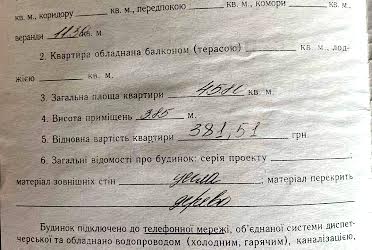 кв. м., коридору ______ кв. м., передпокою ______ кв. м., комори ______ кв. м.,
веранди кв. м
2. Квартира обладнана балконом (терасою) ______ кв. м., лод-
жією ______ кв. м.
3. Загальна площа квартири кв. м.
4. Висота приміщень м.
5. Відновна вартість квартири 381,51 грн
6. Загальні відомості про будинок: серія проекту ______,
матеріал зовнішніх стін , матеріал перекрить
дерево
Будинок підключено до телефонної мережі, об'єднаної системи диспет-
черської та обладнано водопроводом (холодним, гарячим), каналізацією,